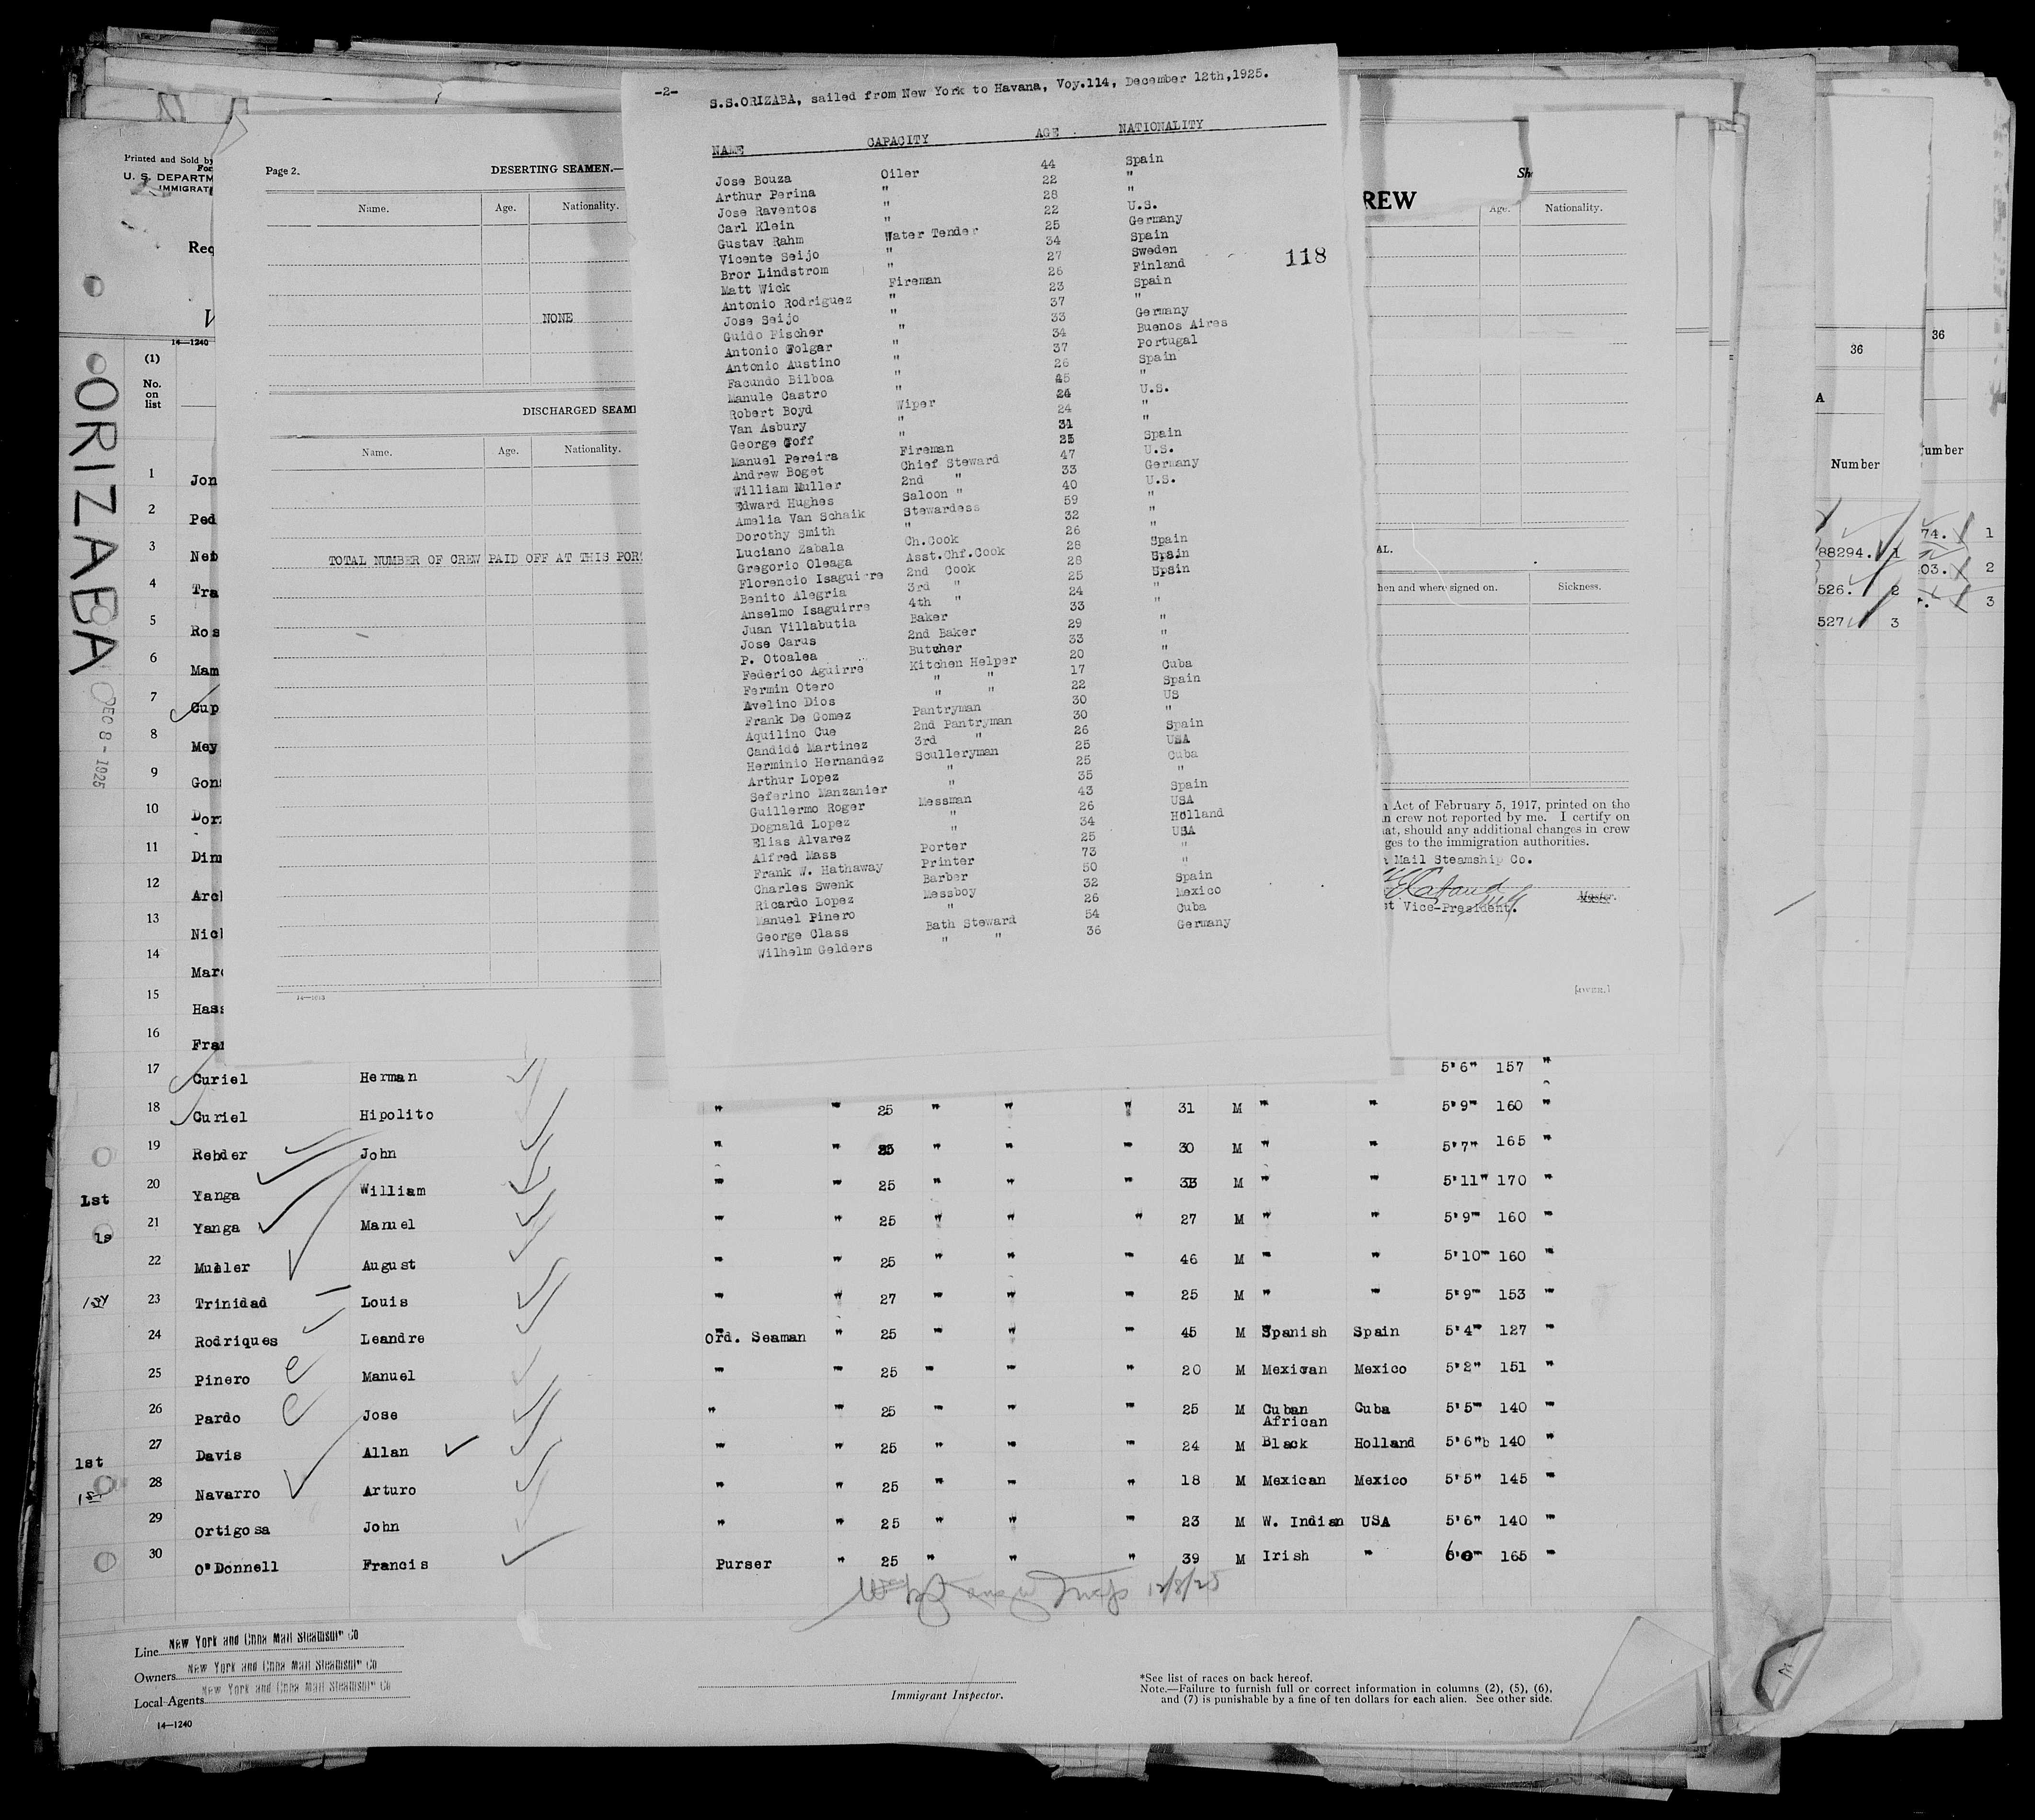 -2-
S.S.ORIZABA, sailed from New York to Havana, Voy.114, December 12th,1925.
NAME CAPACITY AGE NATIONALITY
Jose Bouza Oiler 44 Spain
Arthur Perina " 22 "
Jose Raventos " 28 "
Carl Klein " 22 U.S.
Gustav Rahm Water Tender 25 Germany
Vicente Seijo " 34 Spain
Bror Lindstrom " 27 Sweden
Matt Wick Fireman 26 Finland
Antonio Rodriguez " 23 Spain
Jose Seijo " 37 "
Guido Fischer " 33 Germany
Antonio Folgar " 34 Buenos Aires
Antonio Austino " 37 Portugal
Facundo Bilboa " 26 Spain
Manule Castro " 45 "
Robert Boyd Wiper 24 U.S.
Van Asbury " 24 "
George Goff " 31 "
Manuel Pereira Fireman 25 Spain
Andrew Boget Chief Steward 47 U.S.
William Muller 2nd " 33 Germany
Edward Hughes Saloon " 40 U.S.
Amelia Van Schaik Stewardess 59 "
Dorothy Smith " 32 "
Luciano Zabala Ch.Cook 26 "
Gregorio Oleaga Asst.Chf.Cook 28 Spain
Florencio Isaguirre 2nd Cook 28 Spain
Benito Alegria 3rd " 25 Spain
Anselmo Isaguirre 4th " 24 "
Juan Villabutia Baker 33 "
Jose Carus 2nd Baker 29 "
P. Otoalea Butcher 33 "
Federico Aguirre Kitchen Helper 20 "
Fermin Otero " " 17 Cuba
Avelino Dios " " 22 Spain
Frank De Gomez Pantryman 30 US
Aquilino Cue 2nd Pantryman 30 "
Candido Martinez 3rd " 26 Spain
Herminio Hernandez Sculleryman 25 USA
Arthur Lopez " 25 Cuba
Seferino Manzanier " 35 "
Guillermo Roger Messman 43 Spain
Dognald Lopez " 26 USA
Elias Alvarez " 34 Holland
Alfred Mass Porter 25 USA
Frank W. Hathaway Printer 73 "
Charles Swenk Barber 50 "
Ricardo Lopez Messboy 32 Spain
Manuel Pinero " 26 Mexico
George Class Bath Steward 54 Cuba
Wilhelm Gelders " " 36 Germany
118
Page 2. DESERTING SEAMEN.—
Name. Age. Nationality.
NONE
DISCHARGED SEAM
Name. Age. Nationality.
TOTAL NUMBER OF CREW PAID OFF AT THIS POR
14—1013
REW
Sh
Age. Nationality.
AL.
hen and where signed on. Sickness.
Act of February 5, 1917, printed on the
n crew not reported by me. I certify on
at, should any additional changes in crew
ges to the immigration authorities.
Mail Steamship Co.
st Vice-President. Master.
[OVER.]
Printed and Sold by
For
U. S. DEPARTM
IMMIGRAT
Req
V
14—1240
(1)
No.
on
list
ORIZABA
DEC 8 - 1925
1 Jon
2 Ped
3 Neb
4 Tra
5 Ros
6 Mam
7 Cup
8 Mey
9 Gon
10 Dor
11 Dim
12 Arc
13 Nic
14 Mar
15 Has
16 Fra
17 Curiel Herman 5'6" 157 "
18 Curiel Hipolito " " 25 " " " 31 M " " 5'9" 160 "
19 Rehder John " " 25 " " " 30 M " " 5'7" 165 "
1st 20 Yanga William " " 25 " " " 33 M " " 5'11" 170 "
1s 21 Yanga Manuel " " 25 " " " 27 M " " 5'9" 160 "
22 Muller August " " 25 " " " 46 M " " 5'10" 160 "
23 Trinidad Louis " " 27 " " " 25 M " " 5'9" 153 "
24 Rodriques Leandre Ord. Seaman " 25 " " " 45 M Spanish Spain 5'4" 127 "
25 Pinero Manuel " " 25 " " " 20 M Mexican Mexico 5'2" 151 "
26 Pardo Jose " " 25 " " " 25 M Cuban Cuba 5'5" 140 "
African
1st 27 Davis Allan " " 25 " " " 24 M Black Holland 5'6"b 140 "
1st 28 Navarro Arturo " " 25 " " " 18 M Mexican Mexico 5'5" 145 "
29 Ortigosa John " " 25 " " " 23 M W. Indian USA 5'6" 140 "
30 O'Donnell Francis Purser " 25 " " " 39 M Irish " 6'0" 165 "
12/8/25
Line New York and Cuba Mail Steamship Co
Owners New York and Cuba Mail Steamship Co
Local Agents New York and Cuba Mail Steamship Co
14—1240
Immigrant Inspector.
*See list of races on back hereof.
Note.—Failure to furnish full or correct information in columns (2), (5), (6),
and (7) is punishable by a fine of ten dollars for each alien. See other side.
36
A
Number
88294. 1
526. 2
527 3
36
umber
74. 1
03. 2
3